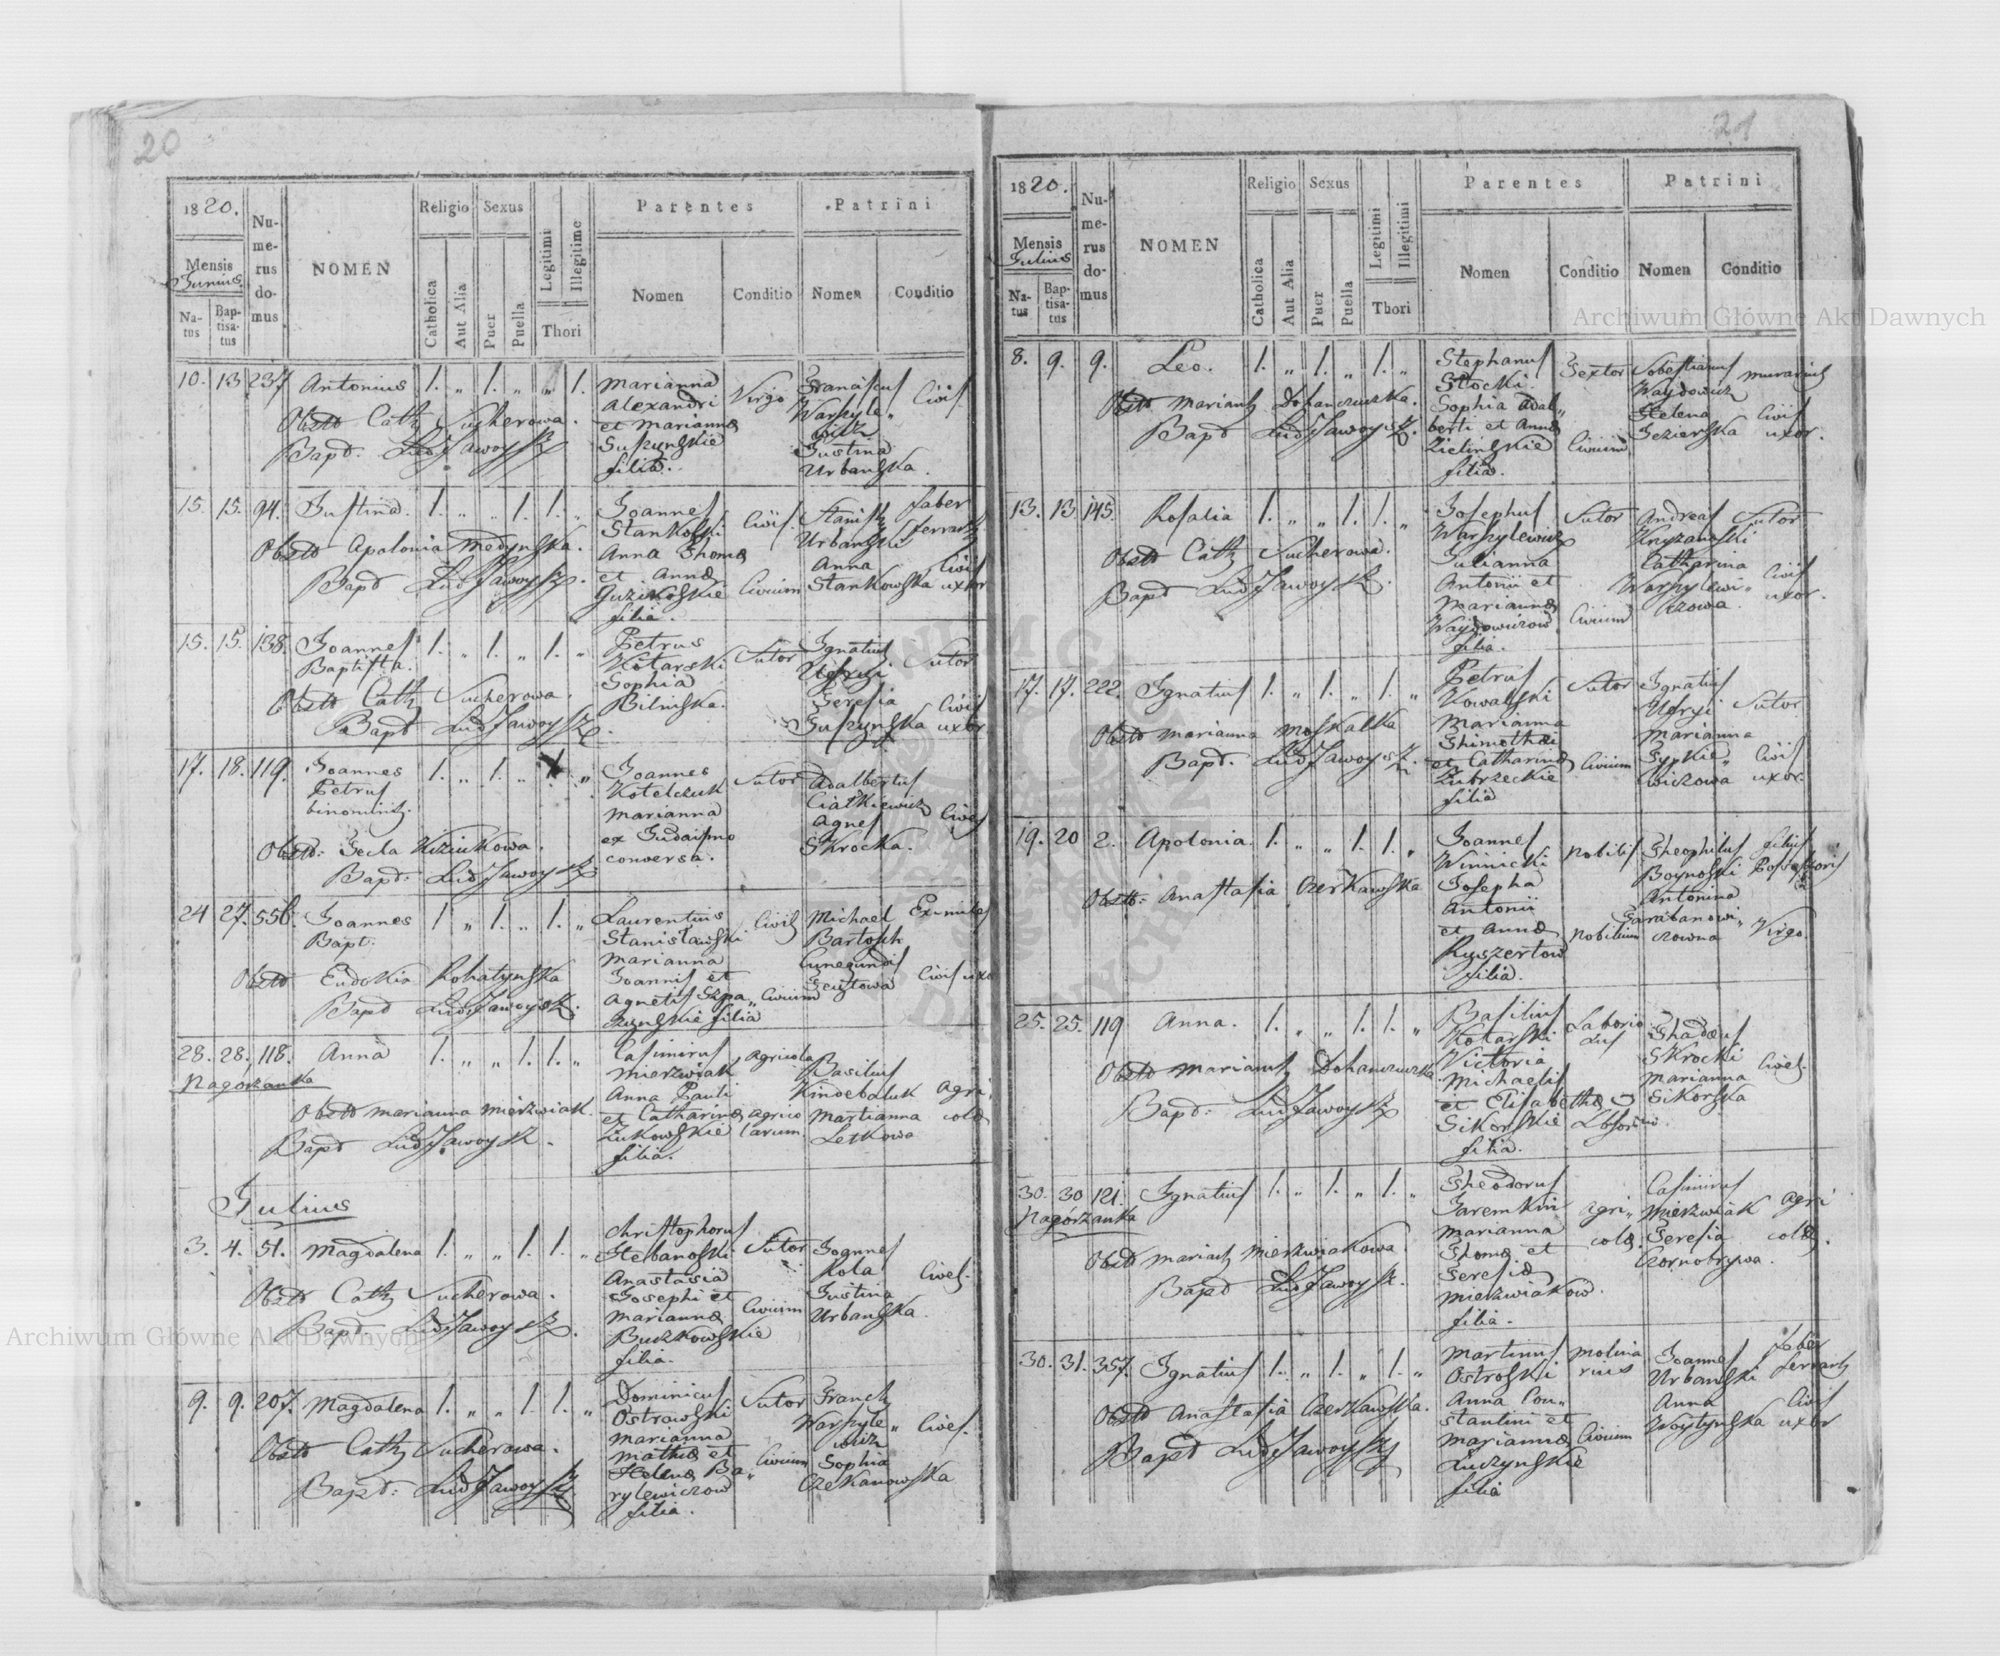 20
1820.
Mensis
Junius.
Natus
Baptisatus
Numerus domus
NOMEN
Religio
Catholica
Aut Alia
Sexus
Puer
Puella
Legitimi
Illegitime
Thori
Parentes
Nomen
Conditio
Patrini
Nomen
Conditio
10. 13 237 Antonius 1. „ 1. „ „ 1.
Obstt Cath Sucherowa.
Bapt. Lud Jawoysz
Marianna
Alexandri
et Mariannæ
Suszynskie
filia.
Virgo
Franciscus
Warhyle„
wicz
Justina
Urbanska.
Civis
15. 15. 94. Justina. 1. „ „ 1. 1. „
Obstt Apolonia Medynska.
Bapt Lud Jawoysz.
Joannes
Stankoski
Anna Thomæ
et Annæ
Guzikoskie
filia.
Civis.
Civium
Stanish
Urbanski
Anna
Stankowska
Faber
ferrarh
Civis
uxor
15. 15. 138. Joannes 1. „ 1. „ 1. „
Baptista.
Obstt Cath Sucherowa.
Bapt Lud Jawoysz.
Petrus
Kotarski
Sophia
Bilinska.
Sutor
Ignatius
Teresia
Suszynska
Sutor
Civis
uxor
17. 18. 119. Joannes 1. „ 1. „ 1. „
Petrus
binominis.
Obstt. Tecla Kiziukowa.
Bapt. Lud Jawoysz
Joannes
Kotelczuk
Marianna
ex Judaismo
conversa.
Sutor
Adalbertus
Ciatkiewicz
Agnes
Skrocka.
Cives
24 27. 556. Joannes 1 „ 1. „ 1. „
Bapt.
Obstt Eudokia Rohatynska
Bapt Lud Jawoysz.
Laurentius
Stanisławski
Marianna
Joannis et
Agnetis Szpa„
filia
Civis
Civium
Michael
Bartosch
Cunegundis
Civis uxo
28. 28. 118. Anna 1. „ „ 1. 1. „
Nagórzanka
Obstt Marianna Mierzwiak.
Bapt Lud Jawoysz.
Casimirus
Mierzwiak
Anna Pauli
et Catharinæ
Zukowskie
filia.
Agricola
Agrico
larum
Basilius
Marianna
Letkowa
Agri
colæ
Julius
3. 4. 51. Magdalena 1. „ „ 1. 1. „
Obstt Cath Sucherowa.
Bapt. Lud Jawoysz.
Christophorus
Stebanoski
Anastasia
Josephi et
Mariannæ
Buczkowskie
filia.
Sutor
Civium
Joannes
Rola
Justina
Urbanska.
Cives.
9. 9. 207. Magdalena 1. „ „ 1. 1. „
Obstt Cath Sucherowa.
Bapt: Lud Jawoysz.
Dominicus
Ostrawski
Marianna
Mathiæ et
Helenæ Ba„
rylewiczow
filia.
Sutor
Civium
Franch
Warhyle„
wicz
Sophia
Czekanowska
Cives.
21
1820.
Mensis
Julius
Natus
Baptisatus
Numerus domus
NOMEN
Religio
Catholica
Aut Alia
Sexus
Puer
Puella
Legitimi
Illegitimi
Thori
Parentes
Nomen
Conditio
Patrini
Nomen
Conditio
8. 9. 9. Leo. 1. „ 1. „ 1. „
Obstt Marianh Dohanczuczka.
Bapt Lud Jawoysz.
Stephanus
Stocki.
Sophia Adal„
berti et Annæ
Zielinskie
filia.
Textor
Civium
Sobestianus
Waydowicz
Helena
Jezierska
murarius
Civis
uxor.
13. 13 145. Rosalia 1. „ „ 1. 1. „
Obstt Cath Sucherowa.
Bapt Lud Jawoysz.
Josephus
Warhylewicz
Julianna
Antonii et
Mariannæ
Waydowiczow
filia.
Sutor
Civium
Andreas
Knyzanoski
Catharina
Warhylewi„
czowa.
Sutor
Civis
uxor.
17. 17. 222. Ignatius 1. „ 1. „ 1. „
Obstt Marianna Moskalka
Bapt. Lud Jawoysz.
Petrus
Kowalski
Marianna
Thimothæi
et Catharinæ
Zubrzeckie
filia
Sutor
Civium
Ignatius
Marianna
Sypkie„
wiczowa
Sutor
Civis
uxor.
19. 20 2. Apolonia. 1. „ „ 1. 1. „
Obstt: Anastasia Czerkawska
Joannes
Winnicki
Josepha
Antonii
et Annæ
Ryszertow
filia.
Nobilis
Nobilium
Theophilus
Boynoski
Antonina
Tarabanowi„
czowna
filius
Possessoris
Virgo.
25. 25. 119 Anna. 1. „ „ 1. 1. „
Obstt Marianh Dohanczuczka
Bapt: Lud Jawoysz
Basilius
Kotarski
Victoria
Michaelis
et Elisabethæ
Sikorskie
filia.
Laborio
sus
Thadæus
Skrocki
Marianna
Sikorska
Cives.
30. 30 121. Ignatius 1. „ 1. „ 1. „
Nagórzanka
Obstt Marianh Mierzwiakowa.
Bapt Lud Jawoysz.
Theodorus
Jaremkiw
Marianna
Thomæ et
Teresiæ
Mierzwiakow.
filia.
Agri„
colæ.
Casimirus
Mierzwiak
Teresia
Czornobrywa.
Agri
colæ.
30. 31. 357. Ignatius 1. „ 1. „ 1. „
Obstt Anastasia Czerkawska.
Bapt Lud Jawoysz
Martinus
Ostroski
Anna Con„
stantini et
Mariannæ
Luczynskie
filia
Molina
rius
Civium
Joannes
Urbanski
Anna
Woytynska
Faber
ferrarh
Civis
uxor
Archiwum Główne Akt Dawnych
Archiwum Główne Akt Dawnych